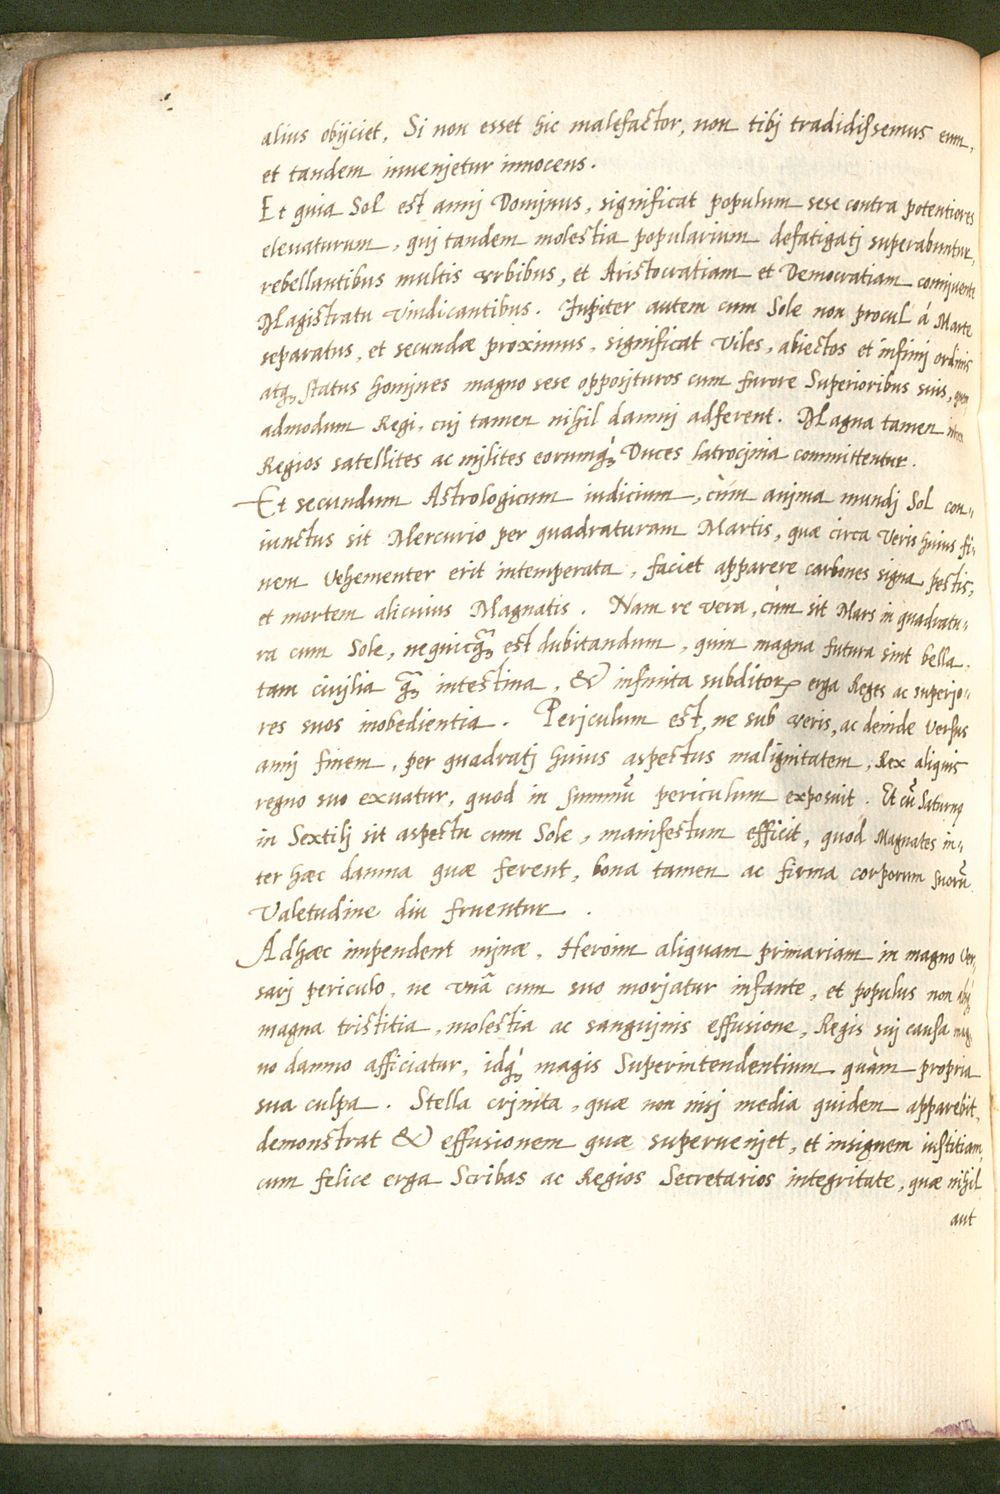 alius obijciet, Si non esset hic malefactor, non tibj tradidissemus eum,
et tandem invenjetur innocens.
Et quia Sol est annj Domjnus, significat populum sese contra potentiores
elevaturum, quj tandem molestia popularium defatigatj superabuntur,
rebellantibus multis vrbibus, et Aristocratiam et Democratiam connjvente
Magistratu vindicantibus. Jupiter autem cum Sole non procul à Marte
separatus, et secundæ proximus, significat viles, abiectos et infimj ordinis
atq3 status homjnes magno sese opposjturos cum furore Superioribus suis, quem
admodum Regi, cuj tamen nihil damnj adferent. Magna tamen inter
Regios satellites ac mjlites eorumq3 Duces latrocjnia committentur.
Et secundum Astrologicum iudicium, cùm anjma mundj Sol con-
iunctus sit Mercurio per quadraturam Martis, quæ circa Veris huius fi-
nem vehementer erit intemperata, faciet apparere carbones signa pestis,
et mortem alicuius Magnatis. Nam re vera, cùm sit Mars in quadratu-
ra cum Sole, nequicq̃3 est dubitandum, quin magna futura sint bella,
tam civjlia q̃3 intestina, & infinita subditoꝝ erga Reges ac superjo-
res suos inobedientia. Perjculum est, ne sub veris, ac deinde versus
annj finem, per quadratj huius aspectus malignitatem, Rex aliquis
regno suo exuatur, quod in summū periculum exposuit. Et cū Saturnꝰ
in Sextilj sit aspectu cum Sole, manifestum efficit, quod Magnates in-
ter hæc damna quæ ferent, bona tamen ac firma corporum suorū
Valetudine diu fruentur.
Adhæc impendent mjnæ, Heroim aliquam primariam in magno ver-
sarj periculo, ne vnā cum suo morjatur infante, et populus non absq3
magna tristitia, molestia ac sangujnis effusione, Regis suj causa mag-
no damno afficiatur, idq3 magis Superintendentium quàm propria
sua culpa. Stella crjnita, quæ non nisj media quidem apparebit,
demonstrat & effusionem quæ supervenjet, et insignem iustitiam,
cum felice erga Scribas ac Regios Secretarios integritate, quæ nihil
aut